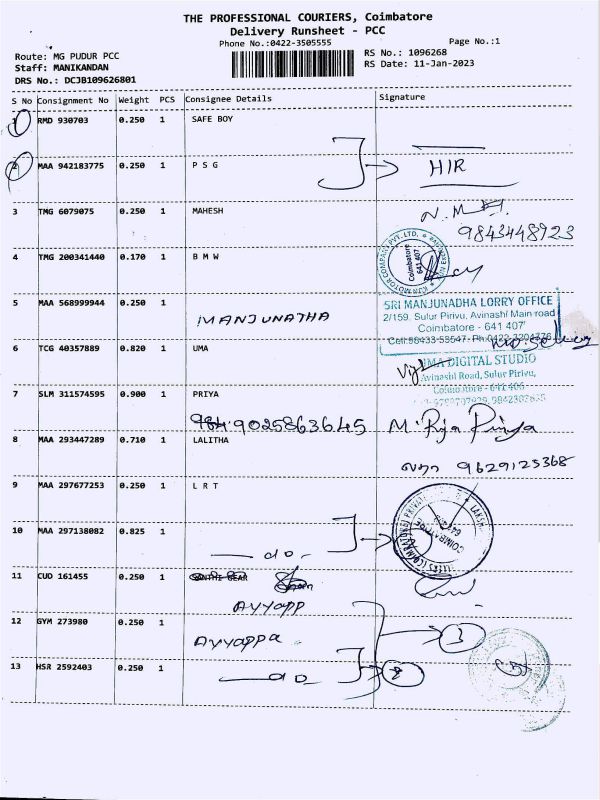 THE PROFESSIONAL COURIERS, Coimbatore
Delivery Runsheet - PCC
Phone No.:0422-3505555
Page No.:1
Route: MG PUDUR PCC
RS No.: 1096268
Staff: MANIKANDAN
RS Date: 11-Jan-2023
DRS No.: DCJB109626801
S No Consignment No Weight PCS Consignee Details Signature
1 RMD 930703 0.250 1 SAFE BOY
2 MAA 942183775 0.250 1 P S G
HIR
3 TMG 6079075 0.250 1 MAHESH
9843448923
4 TMG 200341440 0.170 1 B M W
Coimbatore
641 407
5 MAA 568999944 0.250 1
MANJUNATHA
SRI MANJUNADHA LORRY OFFICE
2/159, Sulur Pirivu, Avinashi Main road
Coimbatore - 641 407
6 TCG 40357889 0.820 1 UMA
DIGITAL STUDIO
Avinashi Road, Sulur Pirivu,
Coimbatore - 641 406
7 SLM 311574595 0.900 1 PRIYA
9025863645 M. Raja Priya
8 MAA 293447289 0.710 1 LALITHA
லதா 9629125368
9 MAA 297677253 0.250 1 L R T
10 MAA 297138082 0.825 1
do
11 CUD 161455 0.250 1
Ayyapp
12 GYM 273980 0.250 1
Ayyappa
13 HSR 2592403 0.250 1
do